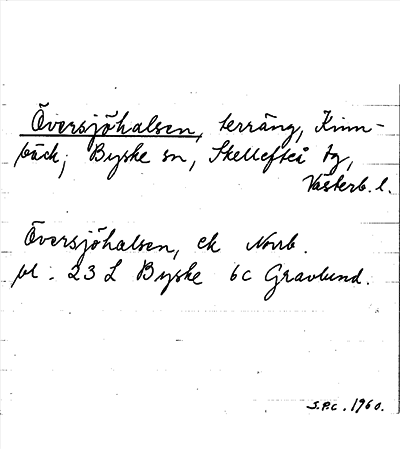 Översjöhalsen, terräng, Kinn-
bäck, Byske sn, Skellefteå tg,
Västerb. l.
Översjöhalsen, ek Norrb.
bl. 23 L Byske 6c Gravlund.
S.P.C. 1960.